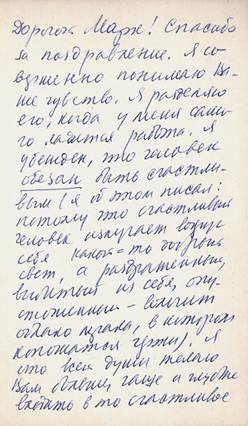 Дорогой Марк! Спасибо
за поздравление. Я со-
вершенно понимаю Ва-
ше чувство. Я разделяю
его, когда у меня само-
го ладится работа. Я
убежден, что человек
обязан быть счастли-
вым (я об этом писал:
потому что счастливый
человек излучает вокруг
себя какой-то добрый
свет, а раздраженный,
выбитый из себя, опу-
стошенный – волочит
облако мрака, в котором
копошатся
). Я
от всей души желаю
Вам больше, чаще и глубже
входить в то счастливое